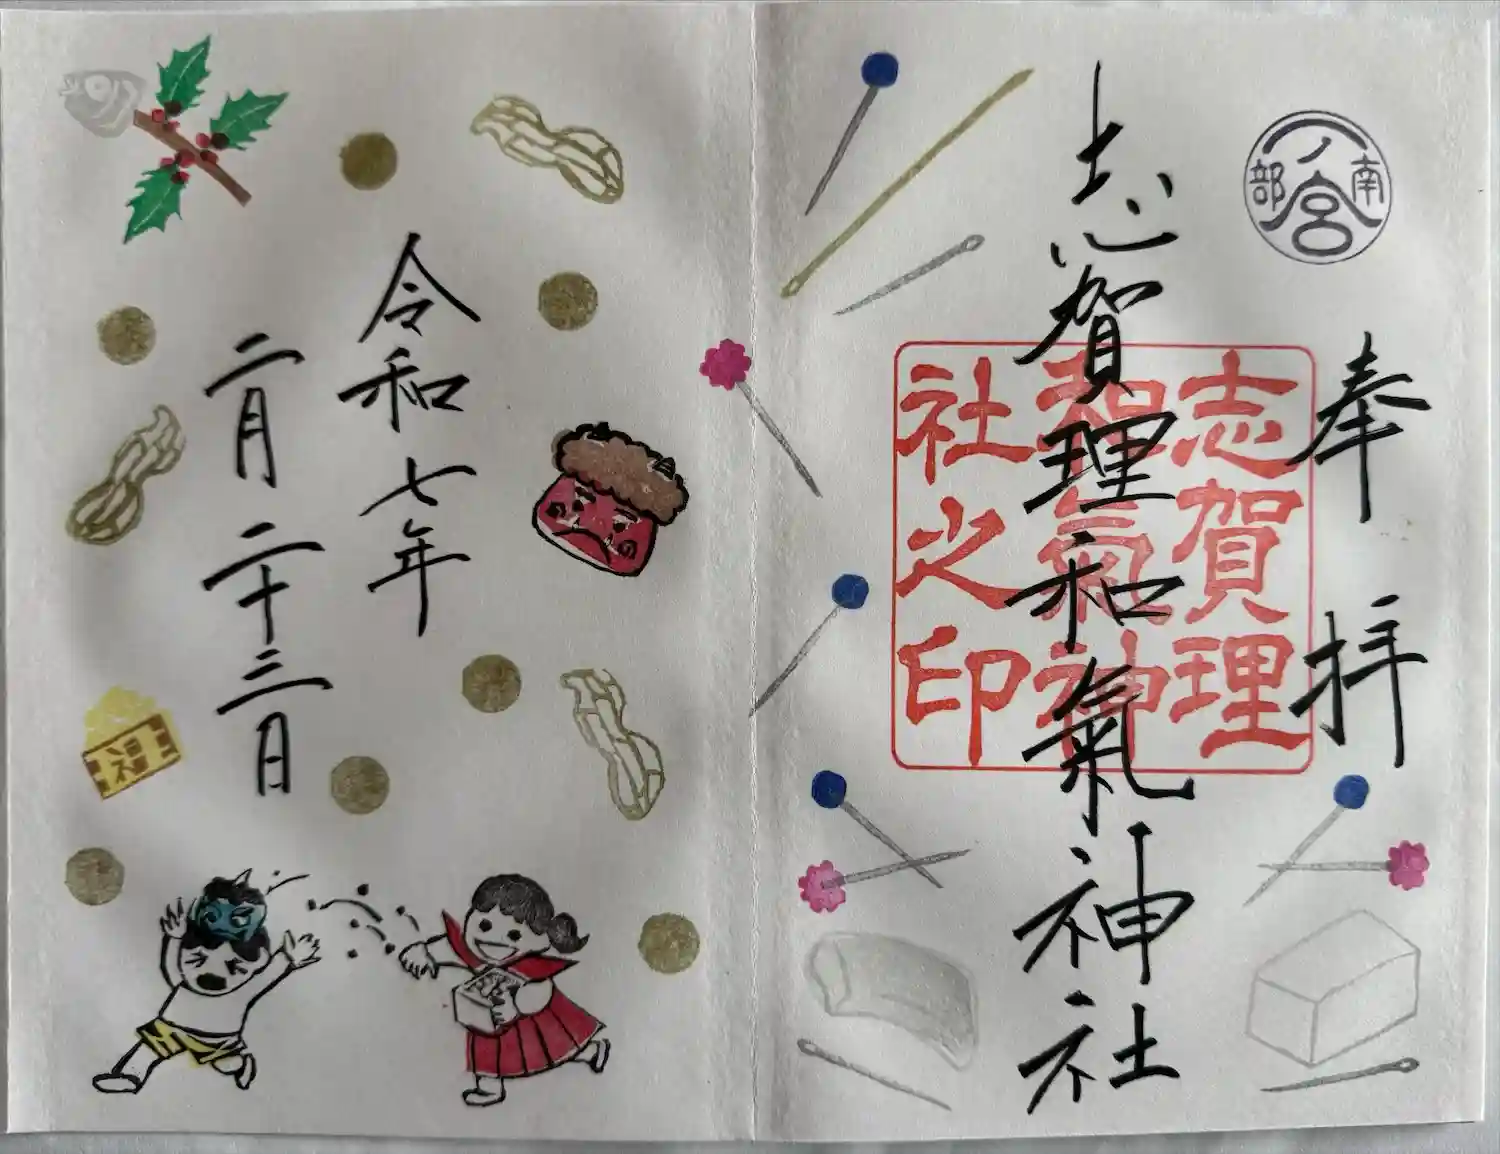 奉拝
南部
一ノ宮
志賀理和氣神社
志賀理
和氣神
社之印
令和七年
二月二十三日
福